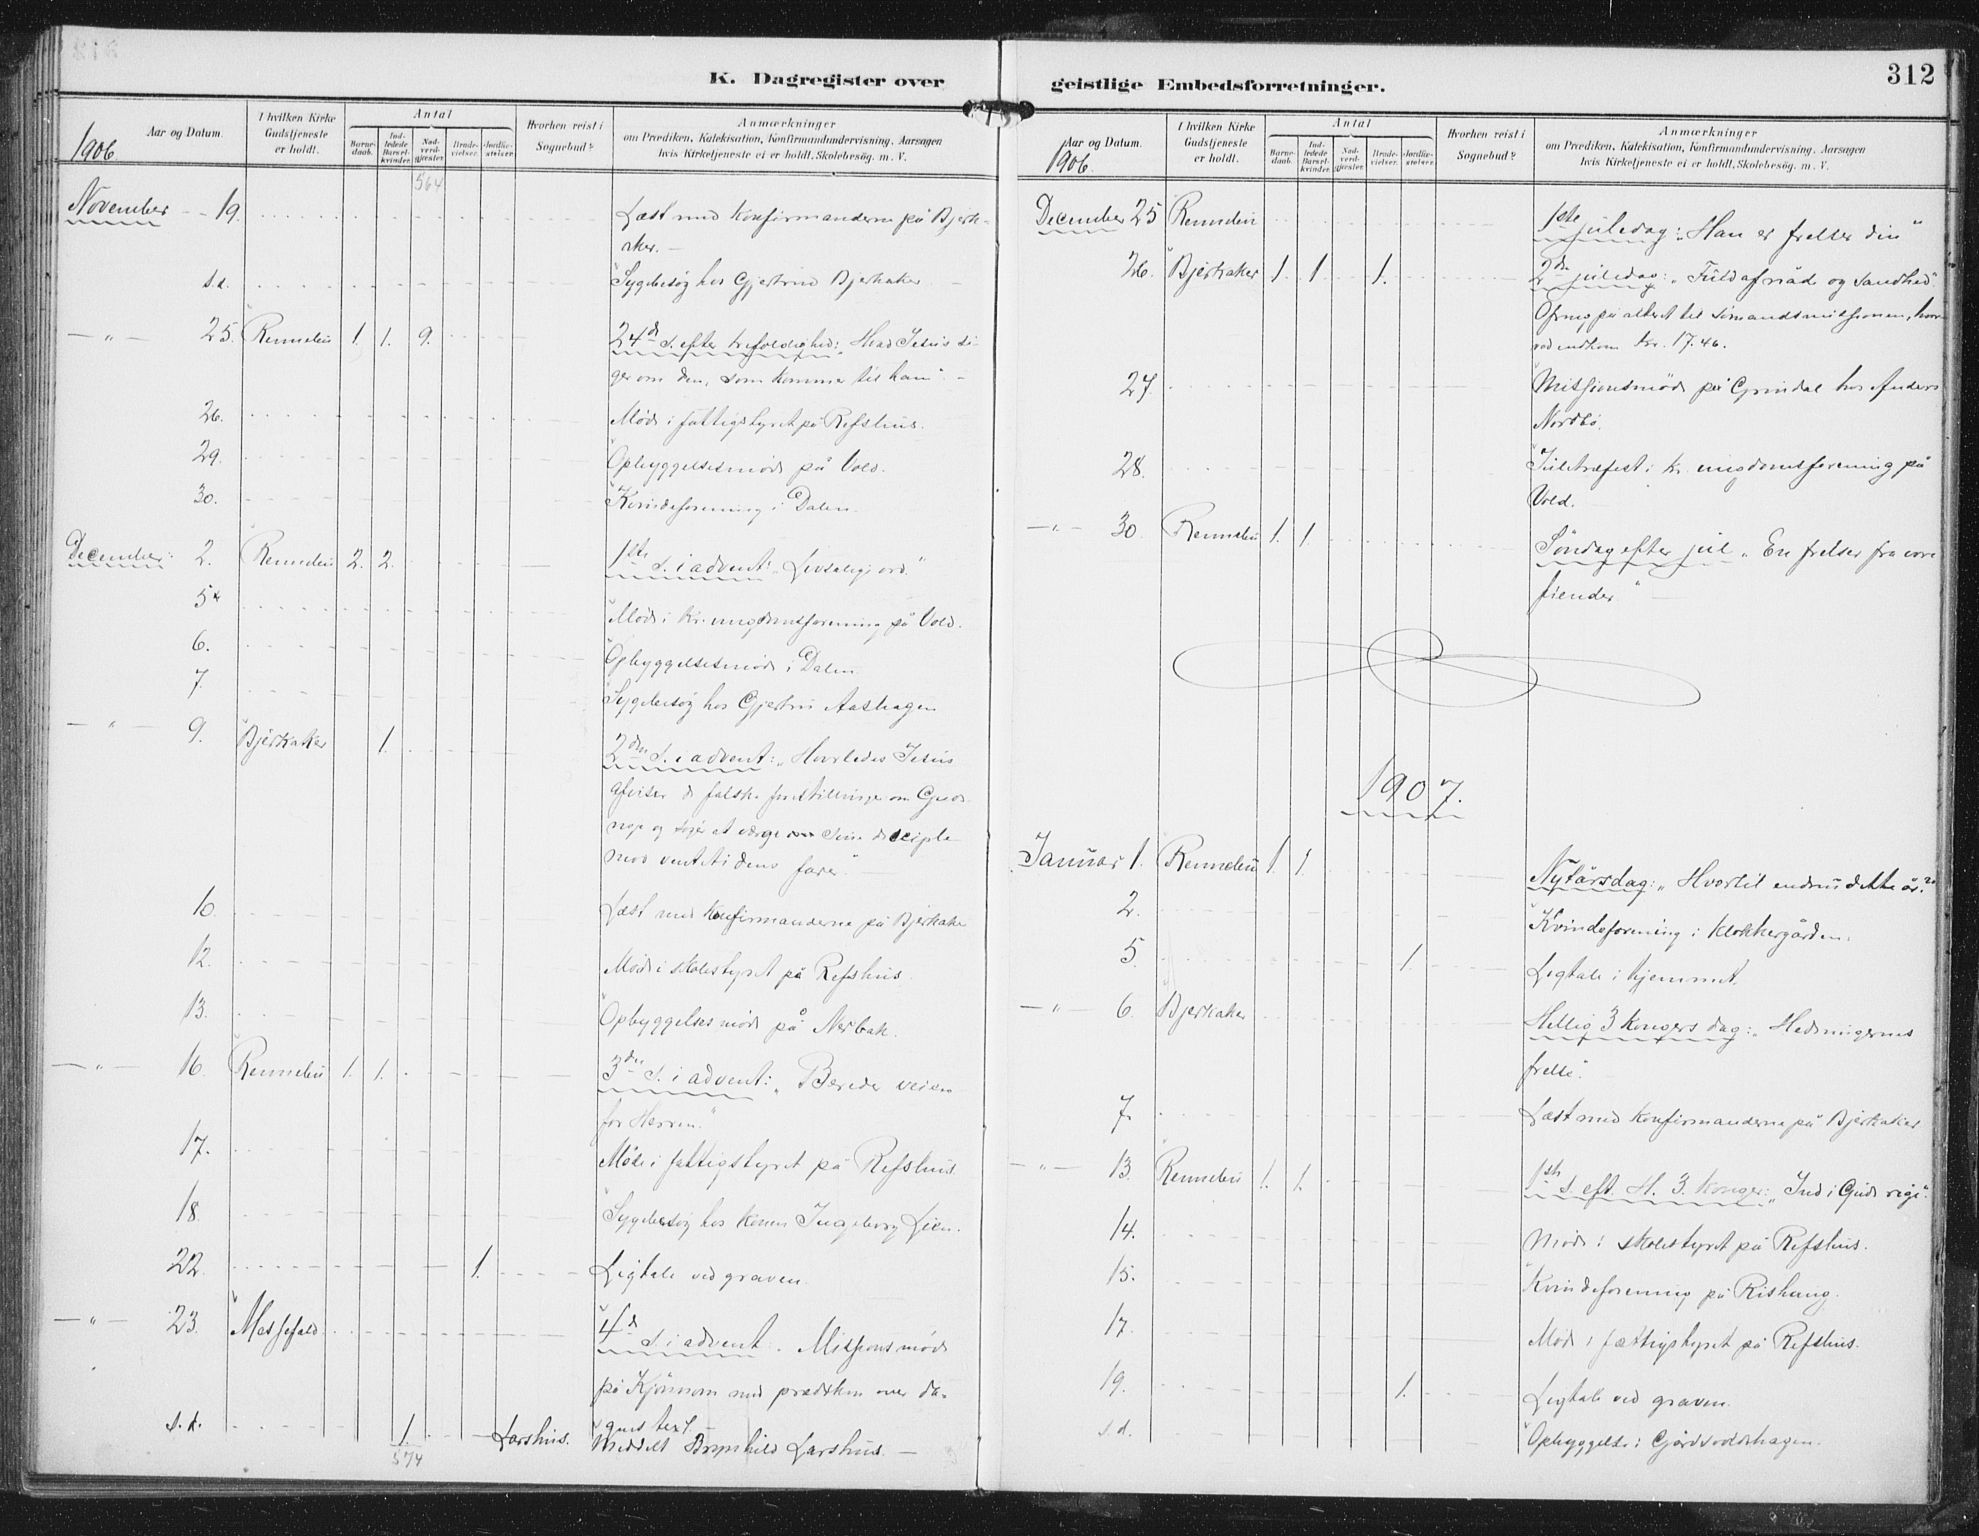 K. Dagregister over geistlige Embedsforretninger.
312
Aar og Datum.
1906
I hvilken Kirke Gudstjeneste er holdt.
Antal
Barnedaab.
Indledede Barselkvinder.
Nadverdgjester.
Brudevielser.
Jordfæstelser.
Hvorhen reist i Sognebud?
Anmærkninger
om Prædiken, Katekisation, Konfirmandundervisning, Aarsagen
hvis Kirketjeneste ei er holdt, Skolebesøg. m. V.
564
November 19. Læst med konfirmanderne på Bjerk-
aker.
s.d. Sygebesøg hos Gjertrud Bjerkaker
25. Rennebu 1. 1. 9. 24d s. efter trefoldighed: "Hvad Jesus si-
ger om den, som kommer til ham".
26. Møde i fattigstyret på Refshus.
29. Opbyggelsesmøde på Vold.
30. Kvindeforening i Dalen.
December: 2. Rennebu 2. 2. 1ste s. i advent: "Livsalige ord."
5. Møde i kr. ungdomsforening på Vold.
6. Opbyggelsesmøde i Dalen
7. Sygebesøg hos Gjertru Aashagen
9. Bjerkaker 1. 2den s. i advent: "Hvorledes Jesus
afviser de falske forestillinger om Guds
rige og søger at værge sine disciple
mod ventetidens farer."
10. Læst med konfirmanderne på Bjerkaker
12. Møde i skolestyret på Refshus.
13. Opbyggelsesmøde på Nerbak.
16. Rennebu 1. 1. 3die s. i advent: "Bereder veien
for Herren."
17. Møde i fattigstyret på Refshus
18. Sygebesøg hos konen Ingeborg Lien.
22. 1. Ligtale ved graven.
23. Messefald. 4d s. i advent. Missionsmøde
på Kjønnom med prædiken over da-
gens text
s.d. 1. Larshus. Meddelt Brynhild Larshus.
574
Aar og Datum.
1906.
I hvilken Kirke Gudstjeneste er holdt.
Antal
Barnedaab.
Indledede Barselkvinder.
Nadverdgjester.
Brudevielser.
Jordfæstelser.
Hvorhen reist i Sognebud?
Anmærkninger
om Prædiken, Katekisation, Konfirmandundervisning, Aarsagen
hvis Kirketjeneste ei er holdt, Skolebesøg. m. V.
December 25 Rennebu 1ste juledag: "Han er frelser din"
26. Bjerkaker 1. 1 1. 2d juledag: "Fuld af nåde og sandhed".
Ofring på alteret til sømandsmissionen, hvor-
ved indkom kr. 17.46.
27. Missionsmøde på Grindal hos Anders
Nordbø.
28. Juletræfest i kr. ungdomsforening på
Vold.
30. Rennebu 1. 1. Søndag efter jul "En frelser fra vore
fiender"
1907.
Januar 1. Rennebu 1 1 Nytårsdag: "Hvortil endnu dette år?"
2. Kvindeforening i Klokkergården.
5. 1. Ligtale i hjemmet.
6. Bjerkaker Hellig 3 kongers dag: "Hedningernes
frelse".
7. Læst med konfirmanderne på Bjerkaker
13. Rennebu 1. 1. 1ste s. eft. H. 3. konger: "Ind i Guds rige".
14. Møde i skolestyret på Refshus.
15. Kvindeforening på Rishaug.
17. Møde i fattigstyret på Refshus.
19. 1. Ligtale ved graven.
s.d. Opbyggelse i Gjårdsvoldshagen.